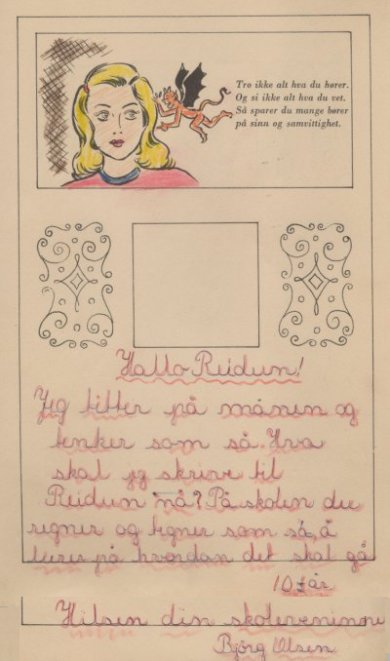 Tro ikke alt hva du hører.
Og si ikke alt hva du vet.
Så sparer du mange bører
på sinn og samvittighet.
Hallo Reidun!
Jeg titter på månen og
tenker som så. Hva
skal jg skrive til
Reidun nå? På skolen du
regner og tegner som så, å
lurer på hvordan det skal gå
10 år
Hilsen din skoleveninne
Bjørg Olsen.